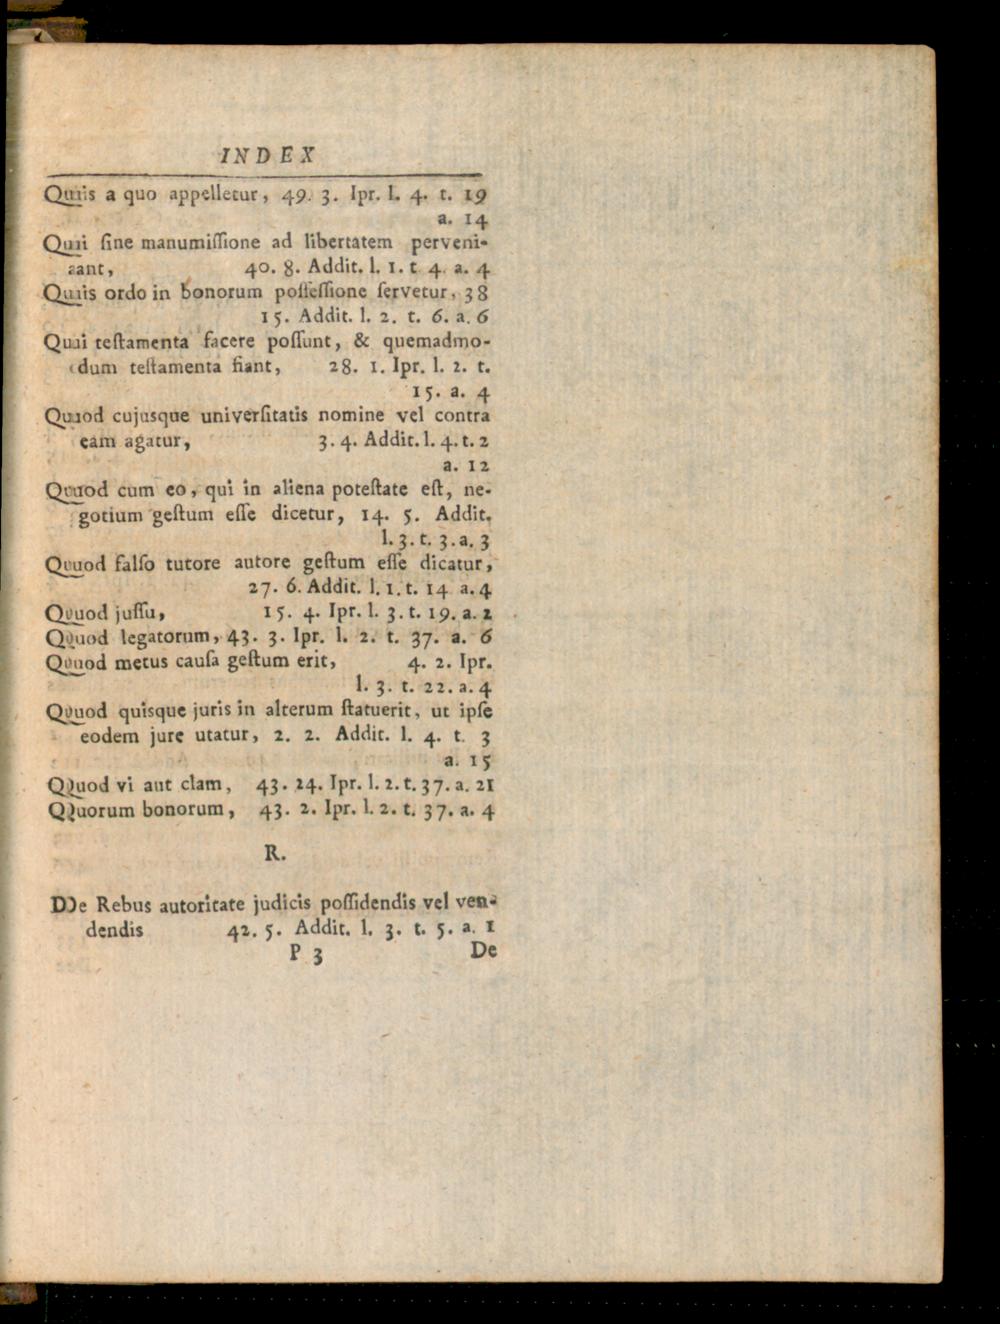 INDEX
Quis a quo appelletur, 49. 3. Ipr. l. 4. t. 19
a. 14
Qui ſine manumiſſione ad libertatem perveni-
ant, 40. 8. Addit. l. 1. t 4. a. 4
Quis ordo in bonorum poſſeſſione ſervetur, 38
15. Addit. l. 2. t. 6. a. 6
Qui teſtamenta facere poſſunt, & quemadmo-
dum teſtamenta fiant, 28. 1. Ipr. l. 2. t.
15. a. 4
Quod cujusque univerſitatis nomine vel contra
eam agatur, 3. 4. Addit. l. 4. t. 2
a. 12
Quod cum eo, qui in aliena poteſtate eſt, ne-
gotium geſtum eſſe dicetur, 14. 5. Addit.
l. 3. t. 3. a. 3
Quod falſo tutore autore geſtum eſſe dicatur,
27. 6. Addit. l. 1. t. 14 a. 4
Quod juſſu, 15. 4. Ipr. l. 3. t. 19. a. 2
Quod legatorum, 43. 3. Ipr. l. 2. t. 37. a. 6
Quod metus cauſa geſtum erit, 4. 2. Ipr.
l. 3. t. 22. a. 4
Quod quisque juris in alterum ſtatuerit, ut ipſe
eodem jure utatur, 2. 2. Addit. l. 4. t. 3
a. 15
Quod vi aut clam, 43. 24. Ipr. l. 2. t. 37. a. 21
Quorum bonorum, 43. 2. Ipr. l. 2. t. 37. a. 4
R.
De Rebus autoritate judicis poſſidendis vel ven-
dendis 42. 5. Addit. l. 3. t. 5. a. 1
P 3 De